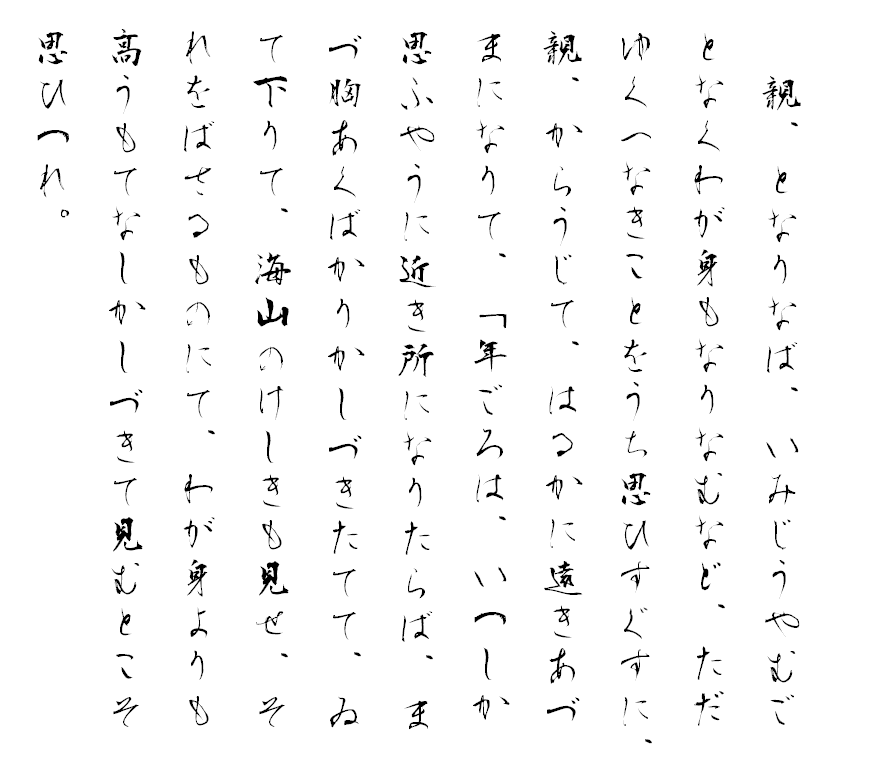 親、となりなば、いみじうやむご
となくわが身もなりなむなど、ただ
ゆくへなきことをうち思ひすぐすに、
親、からうじて、はるかに遠きあづ
まになりて、「年ごろは、いつしか
思ふやうに近き所になりたらば、ま
づ胸あくばかりかしづきたてて、ゐ
て下りて、海山のけしきも見せ、そ
れをばさるものにて、わが身よりも
高うもてなしかしづきて見むとこそ
思ひつれ。